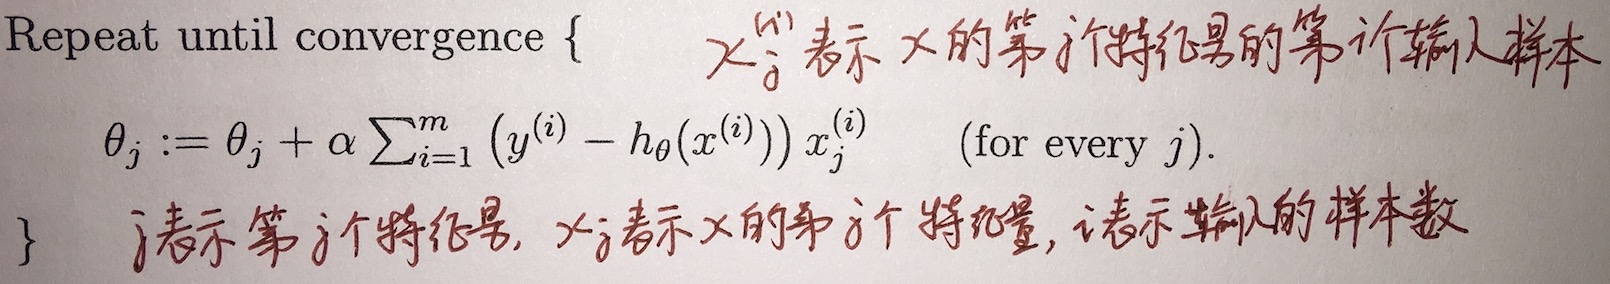 Repeat until convergence {
x_j^{(i)} 表示 x 的第 j 个特征量的第 i 个输入样本
θ_j := θ_j + α ∑_{i=1}^{m} (y^{(i)} − h_θ(x^{(i)})) x_j^{(i)} (for every j).
} j表示第 j 个特征量, x_j 表示 x 的第 j 个特征量, i 表示输入的样本数